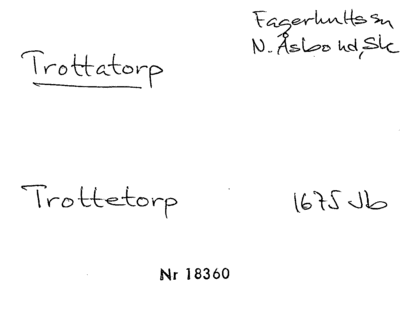 Fagerhults sn
N. Åsbo hd, Sk
Trottatorp
Trottetorp 1675 Jb
Nr 18360